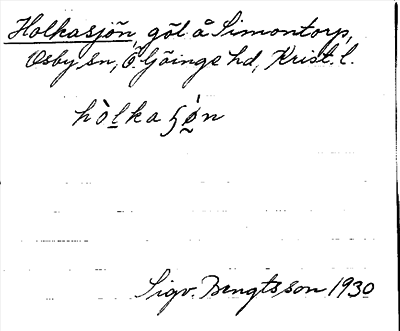 Holkasjön, göl å Simontorp,
Osby sn, Ö. Göinge hd, Krist. l.
hòl̲ka ʂö̀n
Sigv. Bengtsson 1930